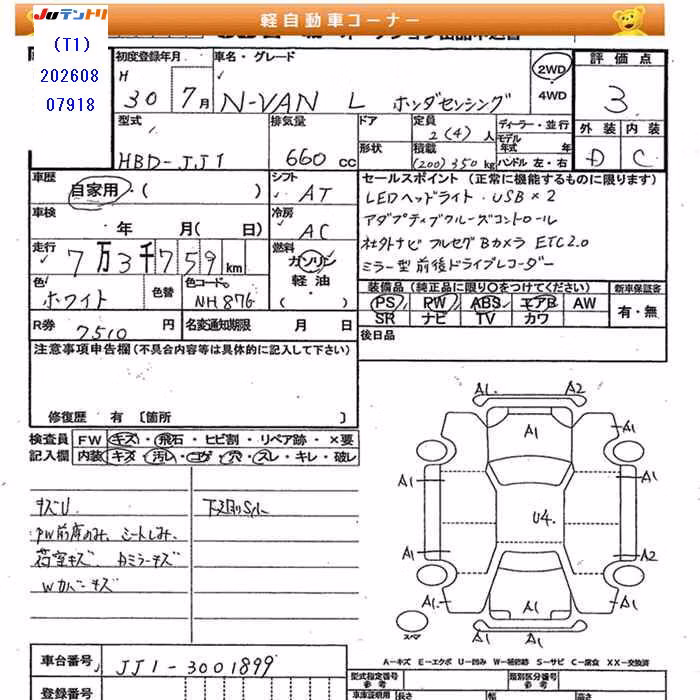 Juテントリ
軽自動車コーナー
(T1)
202608
07918
初度登録年月
H
30 7月
車名・グレード
N-VAN L ホンダセンシング
2WD
4WD
評価点
3
外装 内装
D C
型式
HBD-JJ1
排気量
660 cc
ドア
形状
定員
2(4)人
積載
(200)350kg
ディーラー・並行
モデル年式 年
ハンドル 左・右
車歴
自家用・( )
シフト
AT
車検
年 月( 日)
冷房
AC
走行
7万3千759km
燃料
ガソリン
軽油
( )
色
ホワイト
色替
色コード
NH876
R券
7510 円
名変通知期限 月 日
セールスポイント (正常に機能するものに限ります)
LEDヘッドライト・USB×2
アダプティブクルーズコントロール
社外ナビ フルセグ Bカメラ ETC2.0
ミラー型前後ドライブレコーダー
装備品 (純正品に限り○をつけてください)
PS RW ABS エアB AW
SR ナビ TV カワ
新車保証書
有・無
後日品
注意事項申告欄 (不具合内容等は具体的に記入して下さい)
修復歴 有 〔箇所 〕
検査員
記入欄
FW キズ・飛石・ヒビ割・リペア跡・×要
内装 キズ・汚レ・コゲ・穴・スレ・キレ・破レ
キズU
PW前席のみ、シートしみ、
荷室キズ
Wカバーキズ
下廻りS
A1 A2
A1
A1 A1
A1 A1
U4
A1 A2
A1
A1 A1
スペア
A-キズ E-エクボ U-凹み W-補修跡 S-サビ C-腐食 XX-交換済
車台番号
JJ1-3001899
登録番号
型式指定番号
参考
類別区分番号
参考
車庫証明用 長さ 幅 高さ